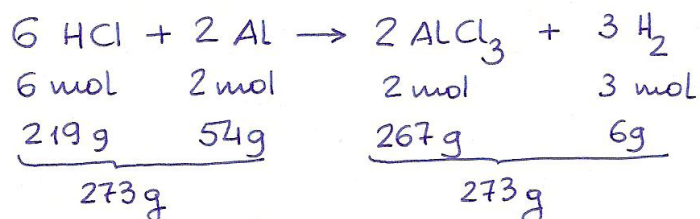 6 HCl + 2 Al → 2 AlCl₃ + 3 H₂
6 mol 2 mol 2 mol 3 mol
219 g 54g 267 g 6g
273 g 273 g